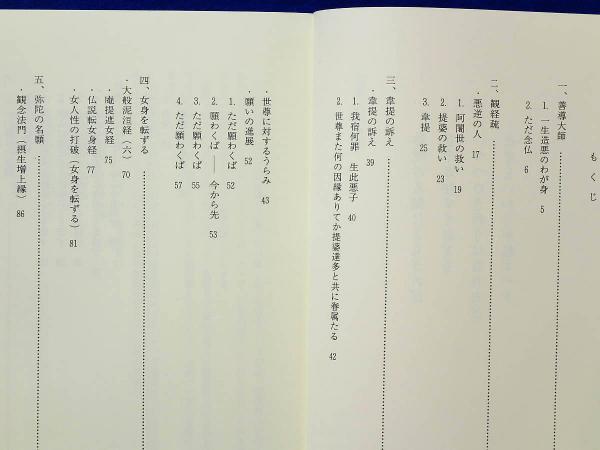 もくじ
一、善導大師 ……………………
1. 一生造悪のわが身 5
2. ただ念仏 6
二、観経疏 ……………………
・悪逆の人 17
1. 阿闍世の救い 19
2. 提婆の救い 23
3. 韋提 25
三、韋提の訴え ……………………
・韋提の訴え 39
1. 我宿何罪 生此悪子 40
2. 世尊また何の因縁ありてか提婆達多と共に眷属たる 42
・世尊に対するうらみ 43
・願いの進展 52
1. ただ願わくば 52
2. 願わくば──今から先 53
3. ただ願わくば 55
4. ただ願わくば 57
四、女身を転ずる ……………………
・大般泥洹経（六） 70
・庵提遮女経 75
・仏説転女身経 77
・女人性の打破（女身を転ずる） 81
五、弥陀の名願 ……………………
・観念法門（摂生増上縁） 86